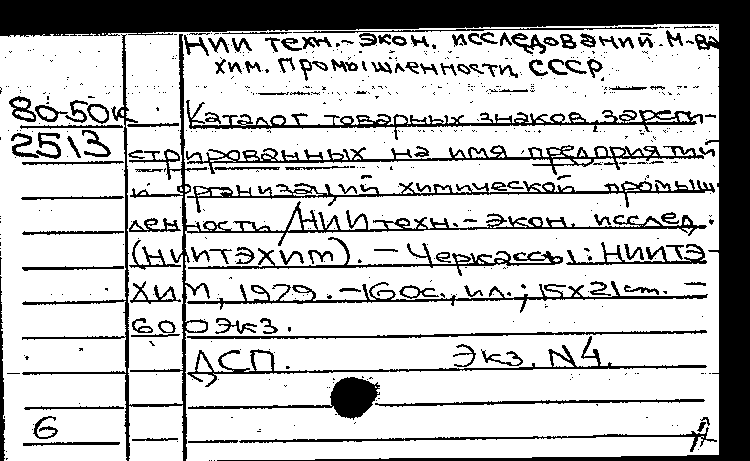 НИИ техн.-экон. исследований М-ва
хим. Промышленности СССР
80-50к Каталог товарных знаков, зареги-
2513 стрированных на имя предприятий
и организаций химической промыш-
ленности /НИИ техн.-экон. исслед.
(НИИТЭХИМ). - Черкассы: НИИТЭ-
ХИМ, 1979. - 160с., ил.; 15х21 ст. -
600 экз.
ДСП. Экз. N4.
6 А